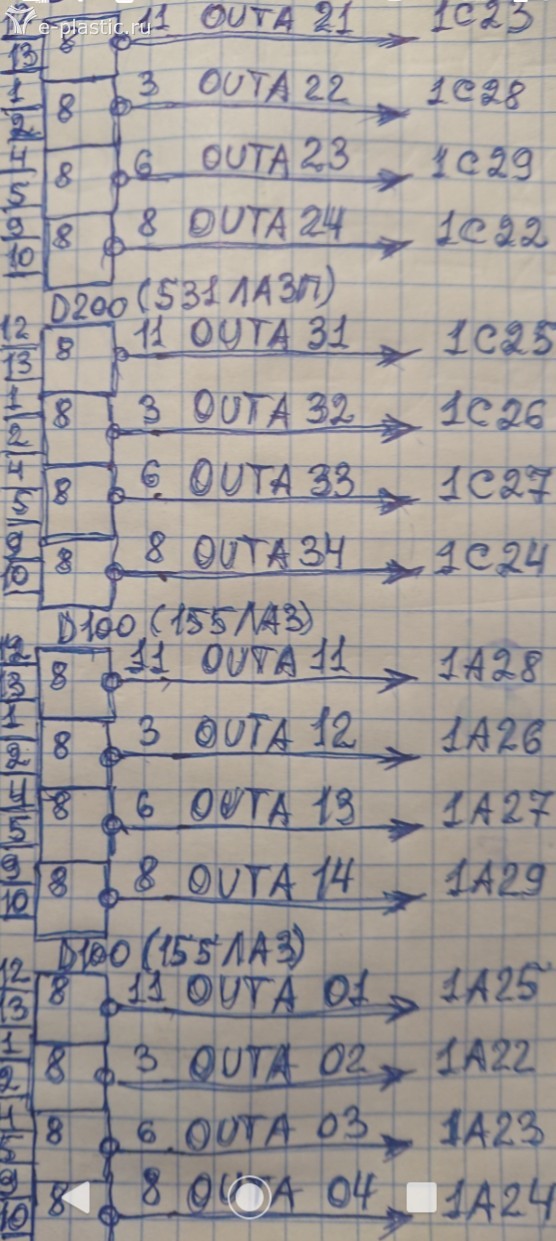 e-plastic.ru
8 11 OUTA 21 1C23
13
1 8 3 OUTA 22 1C28
2
4 8 6 OUTA 23 1C29
5
9 8 8 OUTA 24 1C22
10
D200 (531ЛАЗП)
12 8 11 OUTA 31 1C25
13
1 8 3 OUTA 32 1C26
2
4 8 6 OUTA 33 1C27
5
9 8 8 OUTA 34 1C24
10
D100 (155ЛАЗ)
12 8 11 OUTA 11 1A28
13
1 8 3 OUTA 12 1A26
2
4 8 6 OUTA 13 1A27
5
9 8 8 OUTA 14 1A29
10
D100 (155ЛАЗ)
12 8 11 OUTA 01 1A25
13
1 8 3 OUTA 02 1A22
2
8 6 OUTA 03 1A23
5
9 8 8 OUTA 04 1A24
10